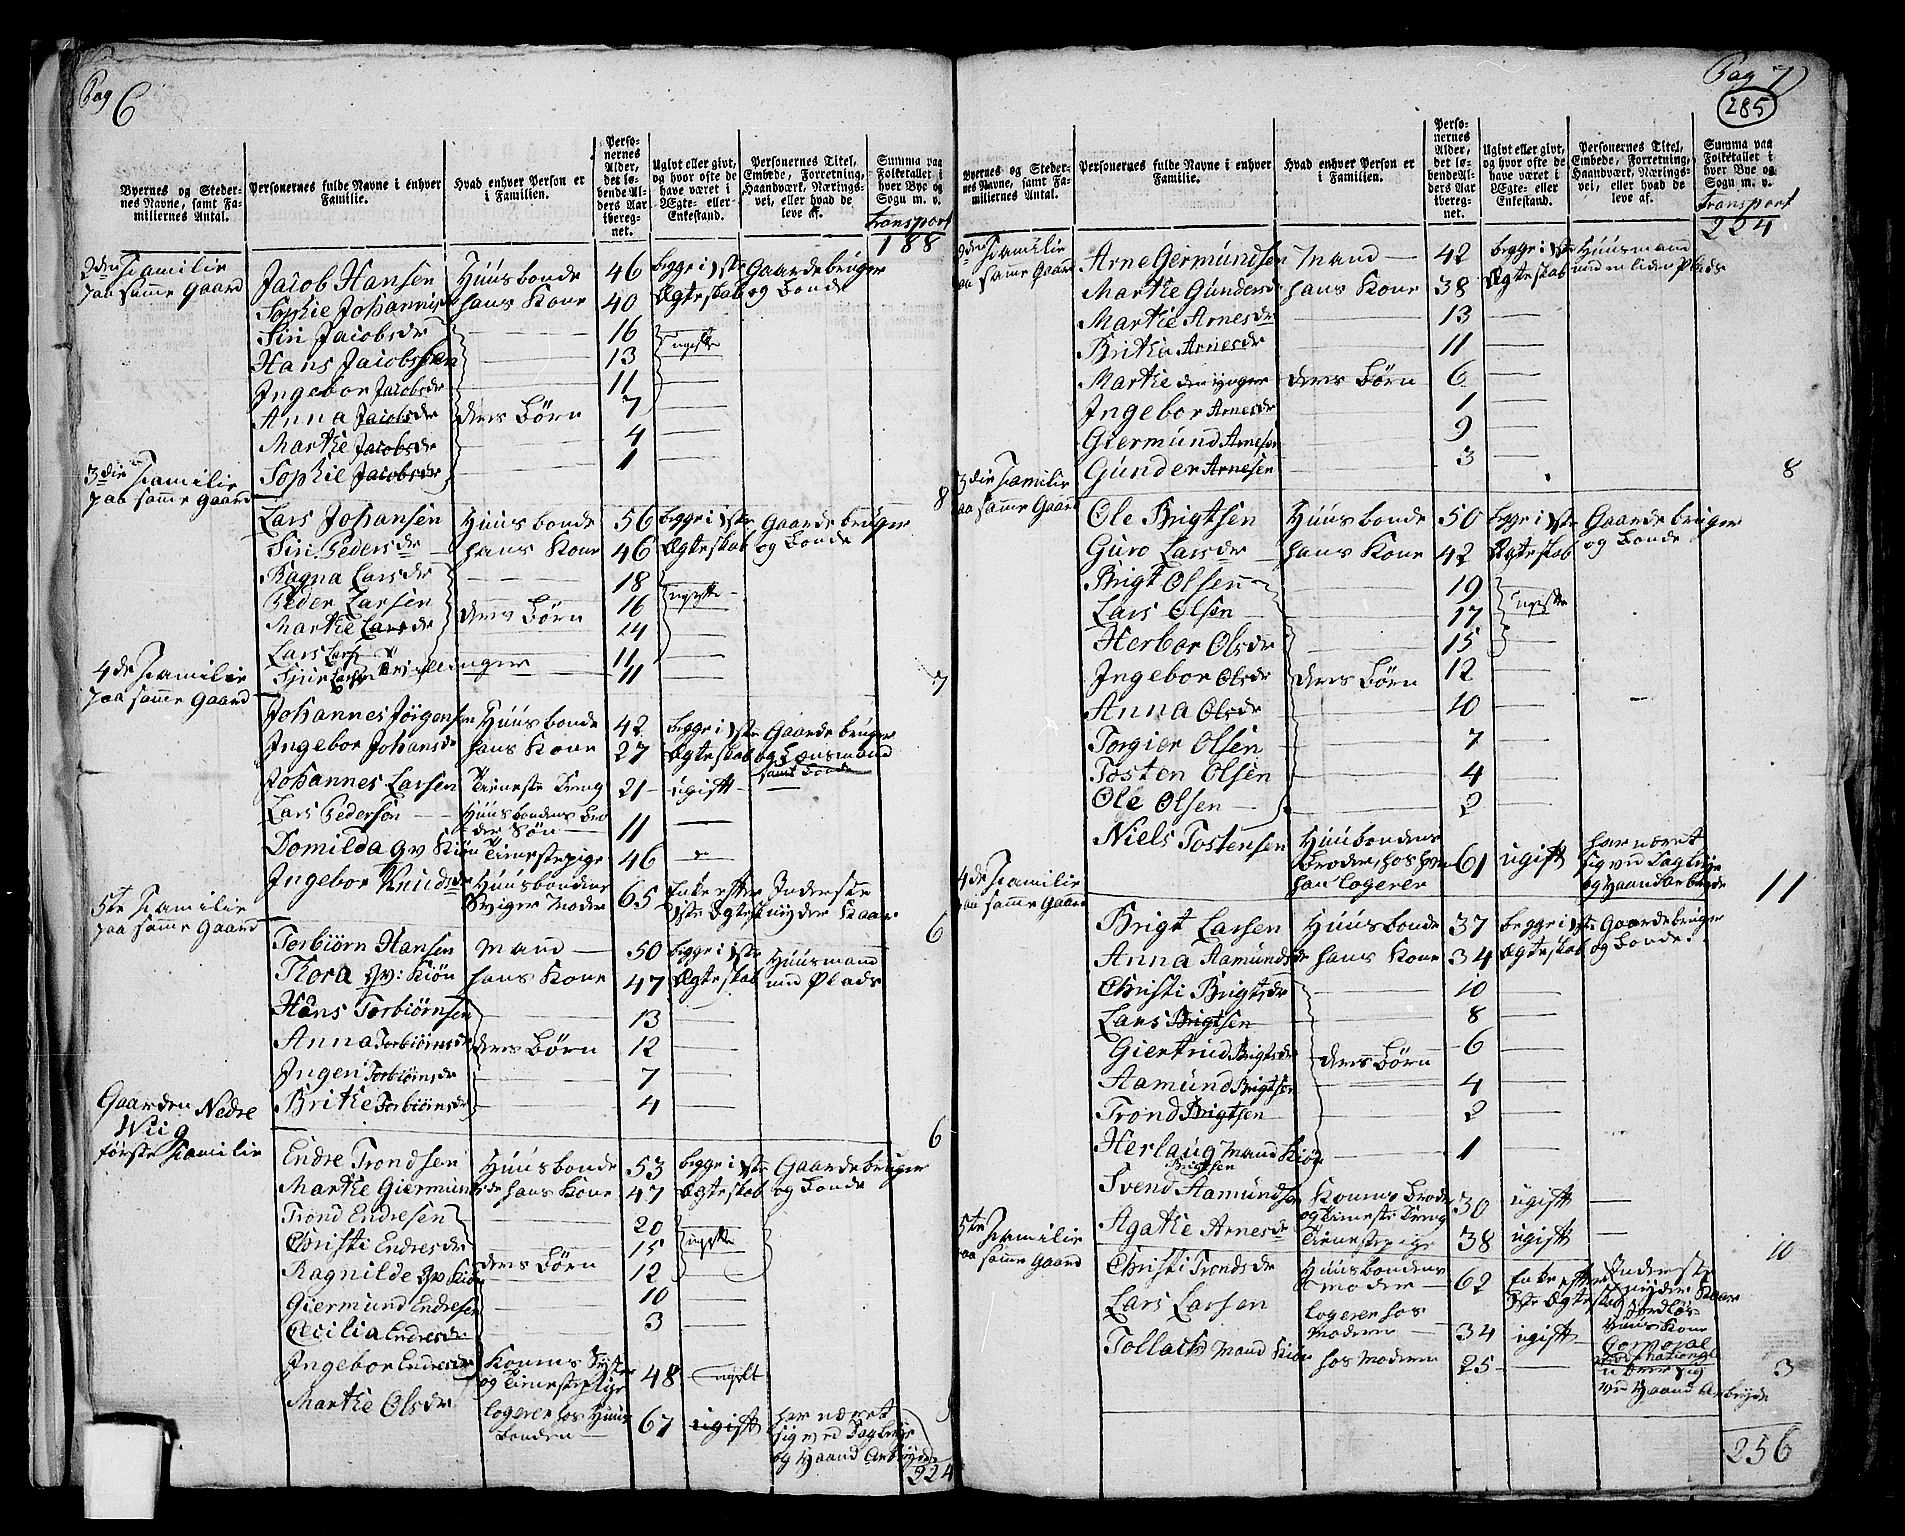 Pag 6
Byernes og Steder-
nes Navne, samt Fa-
miliernes Antal.
Personernes fulde Navne i enhver
Familie.
Hvad enhver Person er
i Familien.
Perso-
nernes
Alder,
det lø-
bende Al-
ders Aar
iberegnet.
Ugivt eller givt,
og hvor ofte de
have været i
Ægte- eller
Enkestand.
Personernes Titel,
Embede, Forretning,
Haandværk, Nærings-
vei, eller hvad de
leve af.
Summa paa
Folketallet i
hver Bye og
Sogn m. v.
Transport
188
2den Familie
paa samme Gaard
Jacob Hansen Huusbonde 46 begge i 1ste Gaardebruger
Sophie Johannisd hans Kone 40 Ægteskab og Bonde
Siri Jacobsdr 16 ugifte
Hans Jacobsen 13
Ingebor Jacobsdr 11
Anna Jacobsdr deres Børn 7
Marthe Jacobsdr 4
Sophie Jacobsdr 1
8
3die Familie
paa samme Gaard
Lars Johansen Huusbonde 56 begge i 1ste Gaardebruger
Siri Pedersdr hans Kone 46 Ægteskab og Bonde
Ragna Larsdr 18 ugifte
Peder Larsen deres Børn 16
Marthe Larsdr 14
Lars Larsen 11
Siur Larsen Tvillinger 11
7
4de Familie
paa samme Gaard
Johannes Jörgensen Huusbonde 42 begge i 1ste Gaardebruger
Ingebor Johansdr hans Kone 27 Ægteskab og Lensmand
samt Bonde
Johannes Larsen Tieneste Dreng 21 ugift
Lars Pederson Huusbondens Bro
der Søn 11
Domilda Qv Kiön Tienestepige 46
Ingebor Knudsdr Huusbondens
Sviger Moder 65 Enke efter
1ste Ægtest Inderste
nyder Kaar
6
5te Familie
paa samme Gaard
Torbiörn Hansen Mand 50 begge i 1ste Huusmand
Thora Qv: Kiön hans Kone 47 Ægteskab med Plads
Hans Torbiörnsen 13
Anna Torbiörnsdr deres Børn 12
Ingeri Torbiörnsdr 7
Brithe Torbiörnsdr 4
6
Gaarden Nedre
Wiig
förste Familie
Endre Trondsen Huusbonde 53 begge i 1ste Gaardebruger
Marthe Giermundsdr hans Kone 47 Ægteskab og Bonde
Trond Endresen 20 ugifte
Christi Endresdr 15
Ragnilde Qv. Kiön deres Børn 12
Giermund Endresen 10
Cecilia Endresdr 3
Ingebor Endresdr Konens Syster
og Tienestepige 48 ugift
Marthe Olsdr Logerer hos Huus
bonden 67 ugift har næret
sig ved Dagleje
og Haand Arbeyde
9
224
Pag 7
285
Byernes og Steder-
nes Navne, samt Fa-
miliernes Antal.
Personernes fulde Navne i enhver
Familie.
Hvad enhver Person er
i Familien.
Perso-
nernes
Alder,
det lø-
bende Al-
ders Aar
iberegnet.
Ugivt eller givt,
og hvor ofte de
have været i
Ægte- eller
Enkestand.
Personernes Titel,
Embede, Forretning,
Haandværk, Nærings-
vei, eller hvad de
leve af.
Summa paa
Folketallet i
hver Bye og
Sogn m. v.
Transport
224
2den Familie
paa samme Gaard
Arne Germundsen Mand 42 begge i 1ste Huusmand
Marthe Gundersdr hans Kone 38 Ægteskab med en liden Plads
Marthe Arnesdr 13
Britha Arnesdr 11
Marthe den yngre deres Børn 6
Ingebor Arnesdr 1
Giermund Arnesen 9
Gunder Arnesen 3
8
3die Familie
paa samme Gaard
Ole Brigtsen Huusbonde 50 begge i 1ste Gaardebruger
Guro Larsdr hans Kone 42 Ægteskab og Bonde
Brigt Olsen 19 ugifte
Lars Olsen 17
Herbor Olsdr 15
Ingebor Olsdr deres Børn 12
Anna Olsdr 10
Torgier Olsen 7
Tosten Olsen 4
Ole Olsen 2
Niels Tostensen Huusbondens
Broder, hos ham
han Logerer 61 ugift har næret
sig ved Dagleje
og Haand Arbeyde
11
4de Familie
paa samme Gaard
Brigt Larsen Huusbonde 37 begge i 1ste Gaardebruger
Anna Aamundsdr hans Kone 34 Ægteskab og Bonde
Christi Brigtsdr 10
Lars Brigtsen 8
Giertrud Brigtsdr deres Børn 6
Aamund Brigtsen 4
Trond Brigtsen 2
Herlaug Mand Kiön 1
Brigtsen
Svend Aamundsen Konens Broder
og Tieneste Dreng 30 ugift
Agathe Arnesdr Tienestepige 38 ugift
10
5te Familie
paa samme Gaard
Christi Trondsdr Huusbondens
Moder 62 Enke efter
1ste Ægteskab Inderste
nyder Kaar
Lars Larsen Logerer hos
Moderen 34 ugift
Jordløs
Huus Kone
Corporal
Tollach Mand Kiön hos Moderen 25
ved National
nærer sig
ved Haand Arbeyde
3
256